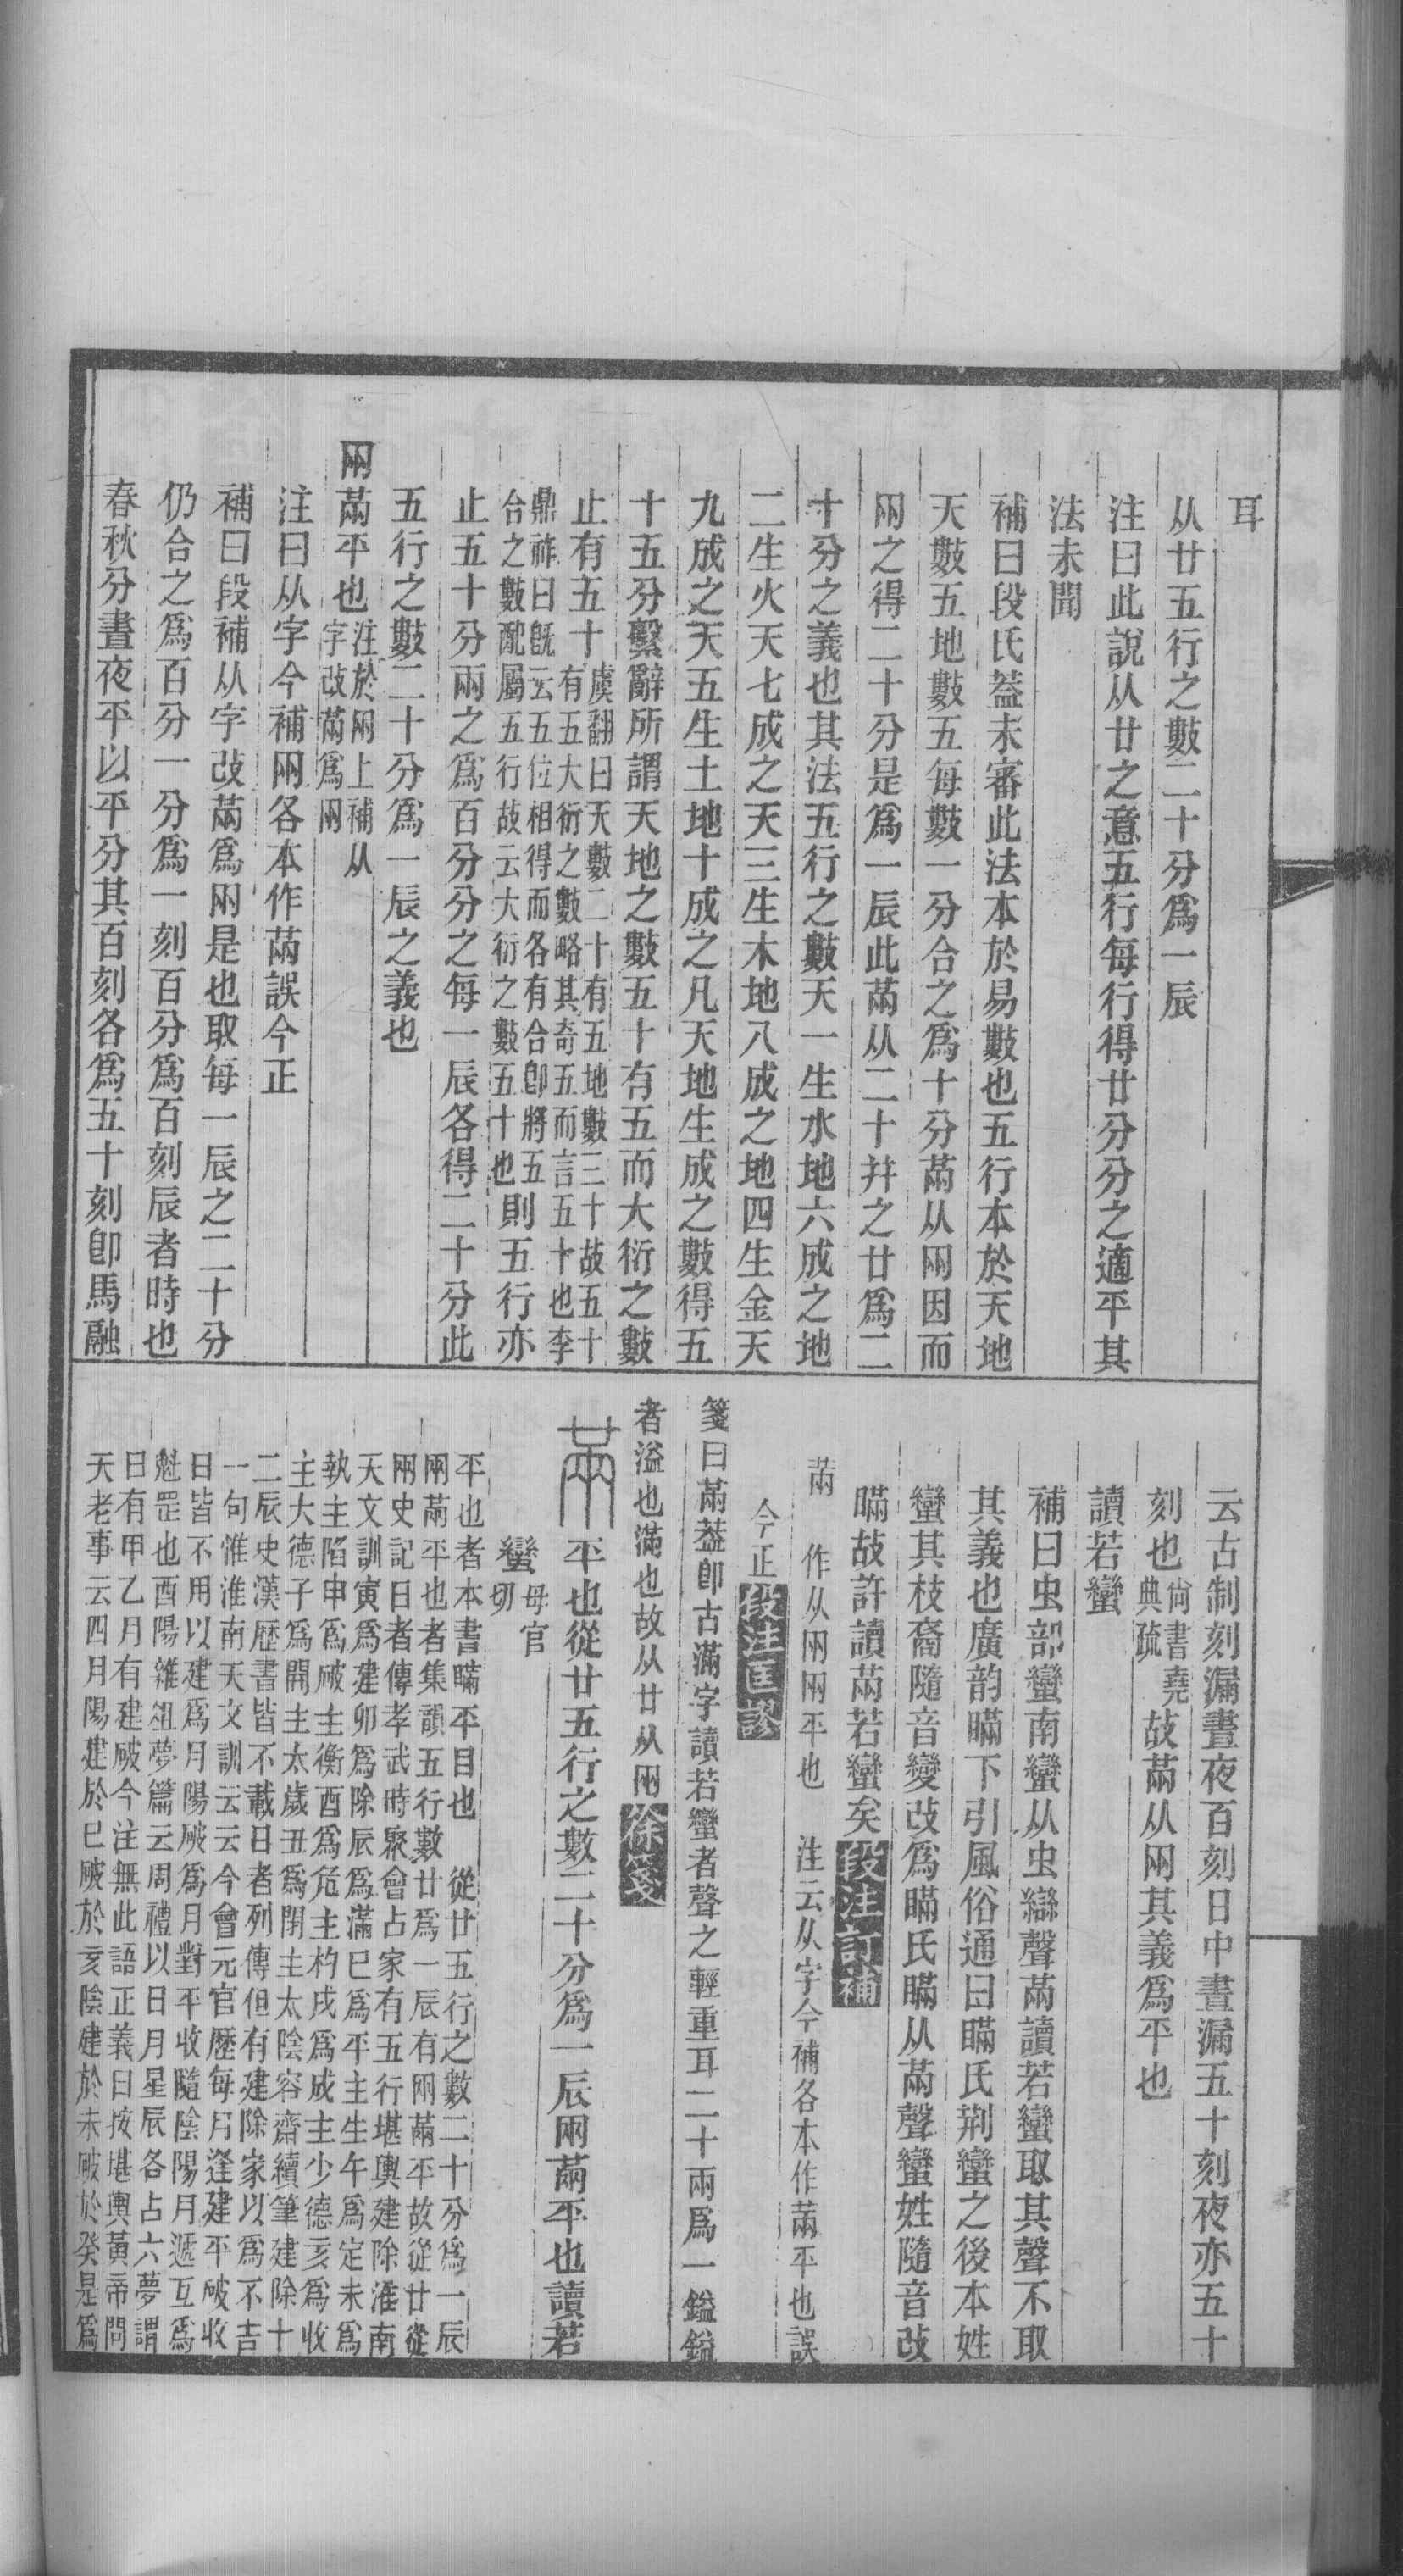 耳
从廿五行之數二十分爲一辰
注曰此說从廿之意五行每行得廿分分之適平其
法未聞
補曰段氏葢未審此法本於易數也五行本於天地
天數五地數五每數一分合之爲十分㒼从㒳因而
㒳之得二十分是爲一辰此㒼从二十幷之廿爲二
十分之義也其法五行之數天一生水地六成之地
二生火天七成之天三生木地八成之地四生金天
九成之天五生土地十成之凡天地生成之數得五
十五分繫辭所謂天地之數五十有五而大衍之數
止有五十虞翻曰天數二十有五地數三十故五十
有五大衍之數略其奇五而言五十也李
鼎祚曰旣云五位相得而各有合卽將五
合之數配屬五行故云大衍之數五十也則五行亦
止五十分兩之爲百分分之每一辰各得二十分此
五行之數二十分爲一辰之義也
㒳㒼平也注於㒳上補从
字改㒼爲㒳
注曰从字今補㒳各本作㒼誤今正
補曰段補从字改㒼爲㒳是也取每一辰之二十分
仍合之爲百分一分爲一刻百分爲百刻辰者時也
春秋分晝夜平以平分其百刻各爲五十刻卽馬融
云古制刻漏晝夜百刻日中晝漏五十刻夜亦五十
刻也尙書堯
典疏故㒼从㒳其義爲平也
讀若蠻
補曰虫部蠻南蠻从虫䜌聲㒼讀若蠻取其聲不取
其義也廣韵瞞下引風俗通曰瞞氏荆蠻之後本姓
蠻其枝裔隨音變改爲瞞氏瞞从㒼聲蠻姓隨音改
瞞故許讀㒼若蠻矣段注訂補
㒼 作从㒳㒳平也 注云从字今補各本作㒼平也誤
今正段注匡謬
箋曰㒼葢卽古滿字讀若蠻者聲之輕重耳二十兩爲一鎰鎰
者溢也滿也故从廿从㒳徐箋
㒼平也從廿五行之數二十分爲一辰㒳㒼平也讀若
蠻母官
切
平也者本書瞞平目也 從廿五行之數二十分爲一辰
㒳㒼平也者集韻五行數廿爲一辰有㒳㒼平故從廿從
㒳史記日者傳孝武時聚會占家有五行堪輿建除淮南
天文訓寅爲建卯爲除辰爲滿巳爲平主生午爲定未爲
執主陷申爲破主衡酉爲危主杓戌爲成主少德亥爲收
主大德子爲開主太歲丑爲閉主太陰容齋續筆建除十
二辰史漢歷書皆不載日者列傳但有建除家以爲不吉
一句惟淮南天文訓云云今會元官歷每月逢建平破收
日皆不用以建爲月陽破爲月對平收隨陰陽月遞互爲
魁罡也酉陽雜俎夢篇云周禮以日月星辰各占六夢謂
日有甲乙月有建破今注無此語正義曰按堪輿黃帝問
天老事云四月陽建於巳破於亥陰建於未破於癸是爲